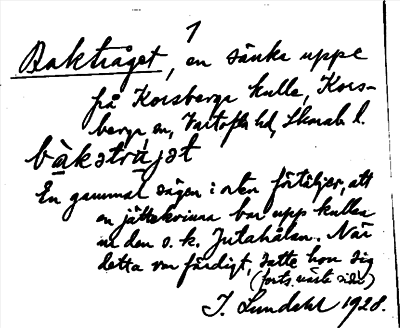 1
Baktråget, en sänka uppe
på Korsberga kulle, Kors-
berga sn, Vartofta hd, Skarab. l.
bàkstråjət
En gammal sägen i orten förtäljer, att
en jättekvinna bar upp kullen
ur den s. k. Jutahålan. När
detta var färdigt, satte hon sig
(forts. nästa sida)
J. Lundahl 1928.